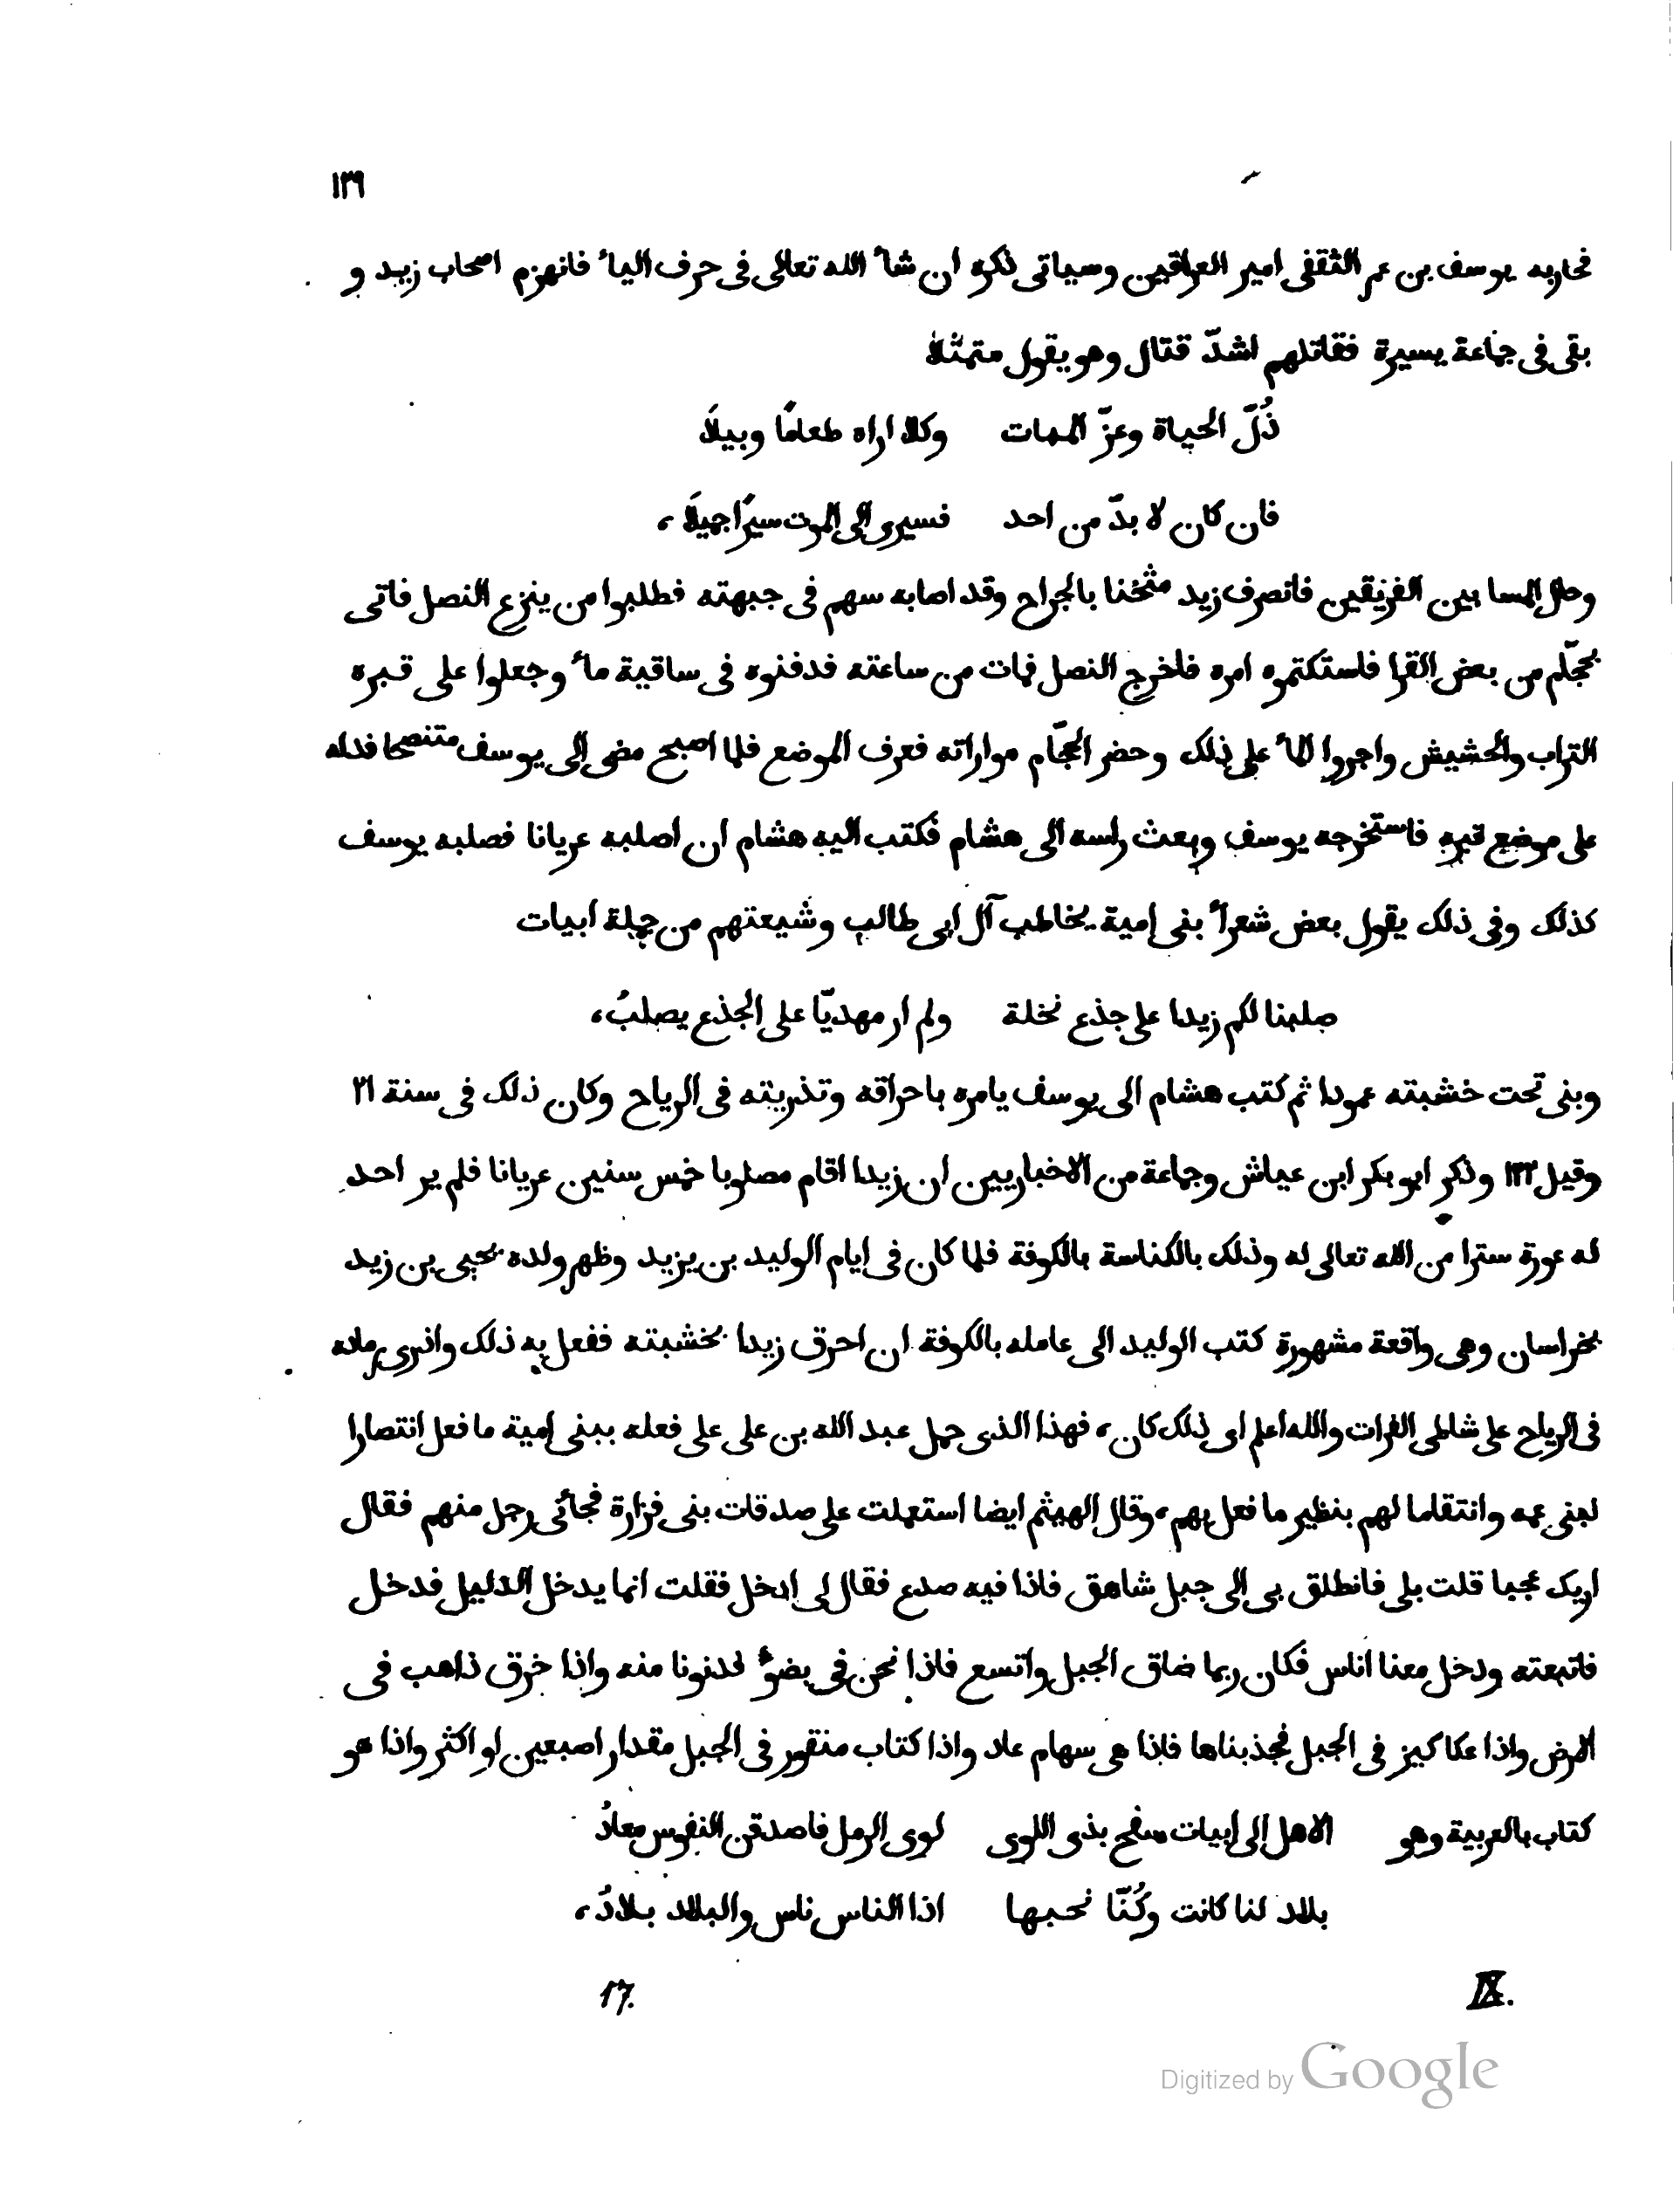 ١٣٩
فحاربه يوسف بن عمر الثقفى امير العراقين وسياتى ذكره ان شأ الله تعالى فى حرف اليأ فانهزم اصحاب زيد و
بقى فى جماعة يسيرة فقاتلهم اشدّ قتال وهو يقول متمثلا
ذُلّ الحياة وعزّ الممات وكلا اراه طعامًا وبيلًا
فان كان لا بدّ من احد فسيرى الى الموت سيرًا جميلًا،
وحال المسا بين الفريقين فانصرف زيد مثخنا بالجراح وقد اصابه سهم فى جبهته فطلبوا من ينزع النصل فاتى
بحجّام من بعض القرا فاستكتموه امره فاخرج النصل فمات من ساعته فدفنوه فى ساقية مأ وجعلوا على قبره
التراب والحشيش واجروا المأ على ذلك وحضر الحجّام مواراته فعرف الموضع فلما اصبح مضى الى يوسف متنصحا فدله
على موضع قبره فاستخرجه يوسف وبعث راسه الى هشام فكتب اليه هشام ان اصلبه عريانا فصلبه يوسف
كذلك وفى ذلك يقول بعض شعرأ بنى امية يخاطب آل ابى طالب وشيعتهم من جملة ابيات
صلبنا لكم زيدا على جذع نخلة ولم ار مهديّا على الجذع يصلبُ،
وبنى تحت خشبته عمودا ثم كتب هشام الى يوسف يامره باحراقه وتذريته فى الرياح وكان ذلك فى سنة ٢١
وقيل ١٢٢ وذكر ابو بكر ابن عياش وجماعة من الاخباريين ان زيدا اقام مصلوبا خمس سنين عريانا فلم ير احد
له عورة سترا من الله تعالى له وذلك بالكناسة بالكوفة فلما كان فى ايام الوليد بن يزيد وظهر ولده يحيى بن زيد
بخراسان وهى واقعة مشهورة كتب الوليد الى عامله بالكوفة ان احرق زيدا بخشبته ففعل به ذلك واذرى رماده
فى الرياح على شاطى الفرات والله اعلم اى ذلك كان، فهذا الذى حمل عبد الله بن على على فعله ببنى امية ما فعل انتصارا
لبنى عمه وانتقاما لهم بنظير ما فعل بهم، وقال الهيثم ايضا استعملت على صدقات بنى فزارة فجائى رجل منهم فقال
اريك عجبا قلت بلى فانطلق بى الى جبل شاهق فاذا فيه صدع فقال لى ادخل فقلت انما يدخل الدليل فدخل
فاتبعته ودخل معنا اناس فكان ربما ضاق الجبل واتسع فاذا نحن فى بضوٴ فدنونا منه واذا خرق ذاهب فى
الارض واذا عكاكيز فى الجبل فجذبناها فاذا هى سهام عاد واذا كتاب منقور فى الجبل مقدار اصبعين او اكثر واذا هو
كتاب بالعربية وهو الاهل الى ابيات سفح بذى اللوى لوى الرمل فاصدقن النفوس معادُ
بلاد لنا كانت وكُنّا نحبها اذا الناس ناس والبلاد بلادُ،
IX. 17.
Digitized by Google